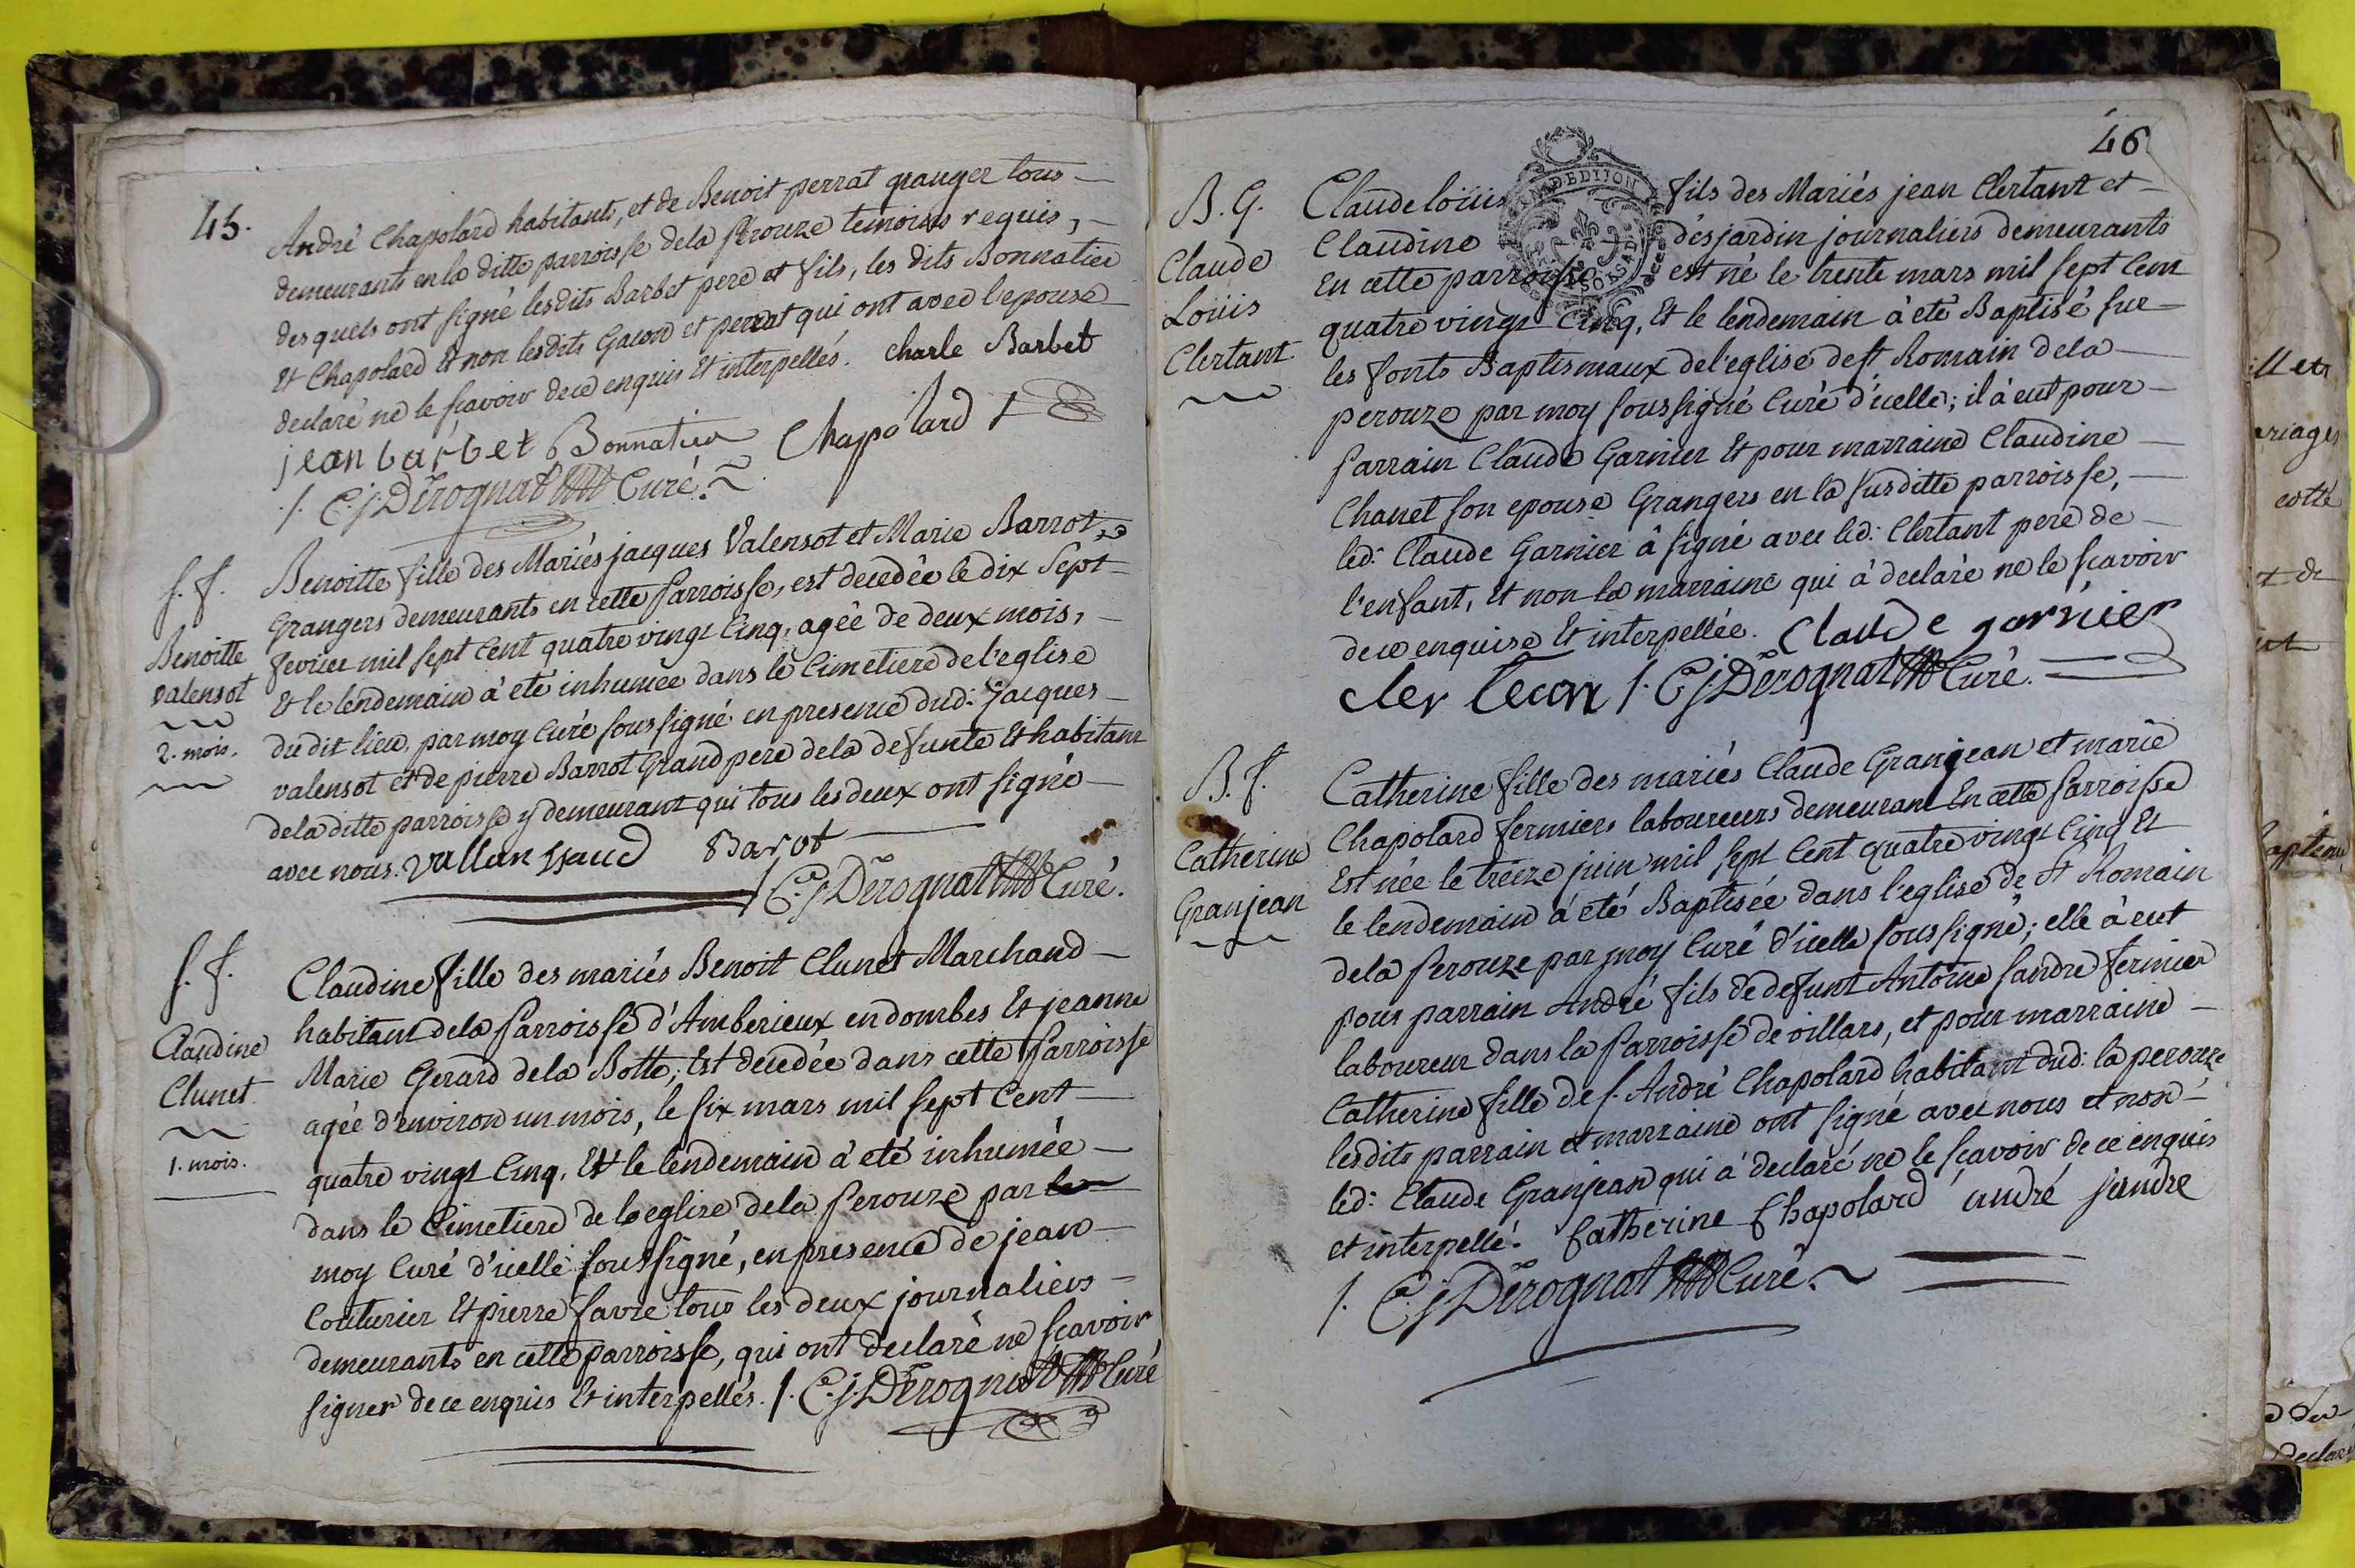 45.
André Chapolard habitants, et de Benoit perrat granger tous
demeurants en la ditte parroisse dela perouze temoins requis,
des quels ont signé lesdits Barbet pere et fils, les dits Bonnatier
Et Chapolard Et non lesdits Gacon et perrat qui ont avec l'epouse
declaré ne le scavoir dece enquis Et interpellés. charle Barbet
jean barbet Bonnatier Chapolard
C. j. Derognat Curé.
S. f.
Benoitte
valensot
2. mois.
Benoitte fille des Mariés jacques Valensot et Marie Barrot
Grangers demeurants en cette Parroisse, est decedée le dix Sept
fevrier mil sept Cent quatre vingt Cinq, agée de deux mois,
Et le lendemain à eté inhumée dans le Cimetiere de l'eglise
du dit lieu, par moy Curé soussigné en presence dud: jacques
valensot et de pierre Barrot Grand pere dela defunte Et habitant
dela ditte parroisse y demeurant qui tous les deux ont signé
avec nous. Barot
C. j. Derognat Curé.
S. f.
Claudine
Clunet
1. mois.
Claudine fille des mariés Benoit Clunet Marchand
habitant dela Parroisse d'Amberieux en dombes Et jeanne
Marie Gerard dela Botte; Est decedée dans cette Parroisse
agée d'environ un mois, le six mars mil sept Cent
quatre vingt Cinq, Et le lendemain à eté inhumée
dans le Cimetiere de l'eglise dela Perouze par
moy Curé d'icelle soussigné, en presence de jean
Couturier Et pierre favre tous les deux journaliers
demeurants en cette parroisse, qui ont declaré ne scavoir
signer de ce enquis Et interpellés. C. j. Derognat Curé
46
B. G.
Claude
Loüis
Clertant
Claude loüis fils des Mariés jean Clertant et
Claudine desjardin journaliers demeurants
En cette parroisse est né le trente mars mil sept Cent
quatre vingt Cinq, Et le lendemain à eté Baptisé sur
les fonts Baptismaux de l'eglise de st Romain dela
perouze par moy soussigné Curé d'icelle; il à eut pour
Parrain Claude Garnier Et pour marraine Claudine
Chanet son epouse Grangers en la susditte parroisse,
led: Claude Garnier â signé avec led: Clertant pere de
l'enfant, Et non la marraine qui à declaré ne le scavoir
de ce enquise Et interpellée. Claude garnier
C. j. Derognat Curé.
B. f.
Catherine
Granjean
Catherine fille des mariés Claude Granjean et marie
Chapolard fermiers laboureurs demeurant En cette Parroisse
Est née le treize juin mil sept Cent quatre vingt Cinq Et
le lendemain à eté Baptisée dans l'eglise de st Romain
dela Perouze par moy Curé d'icelle soussigné; elle à eut
pour parrain André fils de defunt Antoine Sandre fermier
laboureur dans la Parroisse de villars, et pour marraine
Catherine fille de s. André Chapolard habitant dud: la perouze
lesdits parrain et marraine ont signé avec nous et non
led: Claude Granjean qui à declaré ne le scavoir de ce enquis
et interpellé. Catherine Chapolard andré sandre
C. j. Derognat Curé.